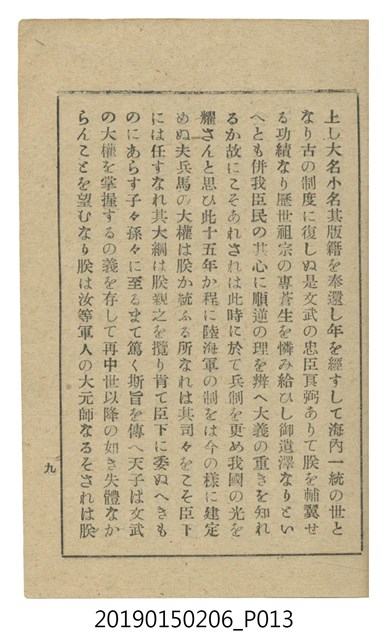 上し大名小名其版籍を奉還し年を經すして海內一統の世と
なり古の制度に復しぬ是文武の忠臣良弼ありて朕を輔翼せ
る功績なり歷世祖宗の專蒼生を憐み給ひし御遺澤なりとい
へとも併我臣民の其心に順逆の理を辨へ大義の重きを知れ
るか故にこそあれされは此時に於て兵制を更め我國の光を
耀さんと思ひ此十五年か程に陸海軍の制をは今の樣に建定
めぬ夫兵馬の大權は朕か統ふる所なれは其司々をこそ臣下
には任すなれ其大綱は朕親之を攬り肯て臣下に委ぬへきも
のにあらす子々孫々に至るまて篤く斯旨を傳へ天子は文武
の大權を掌握するの義を存して再中世以降の如き失體なか
らんことを望むなり朕は汝等軍人の大元師なるそされは朕
九
20190150206_P013